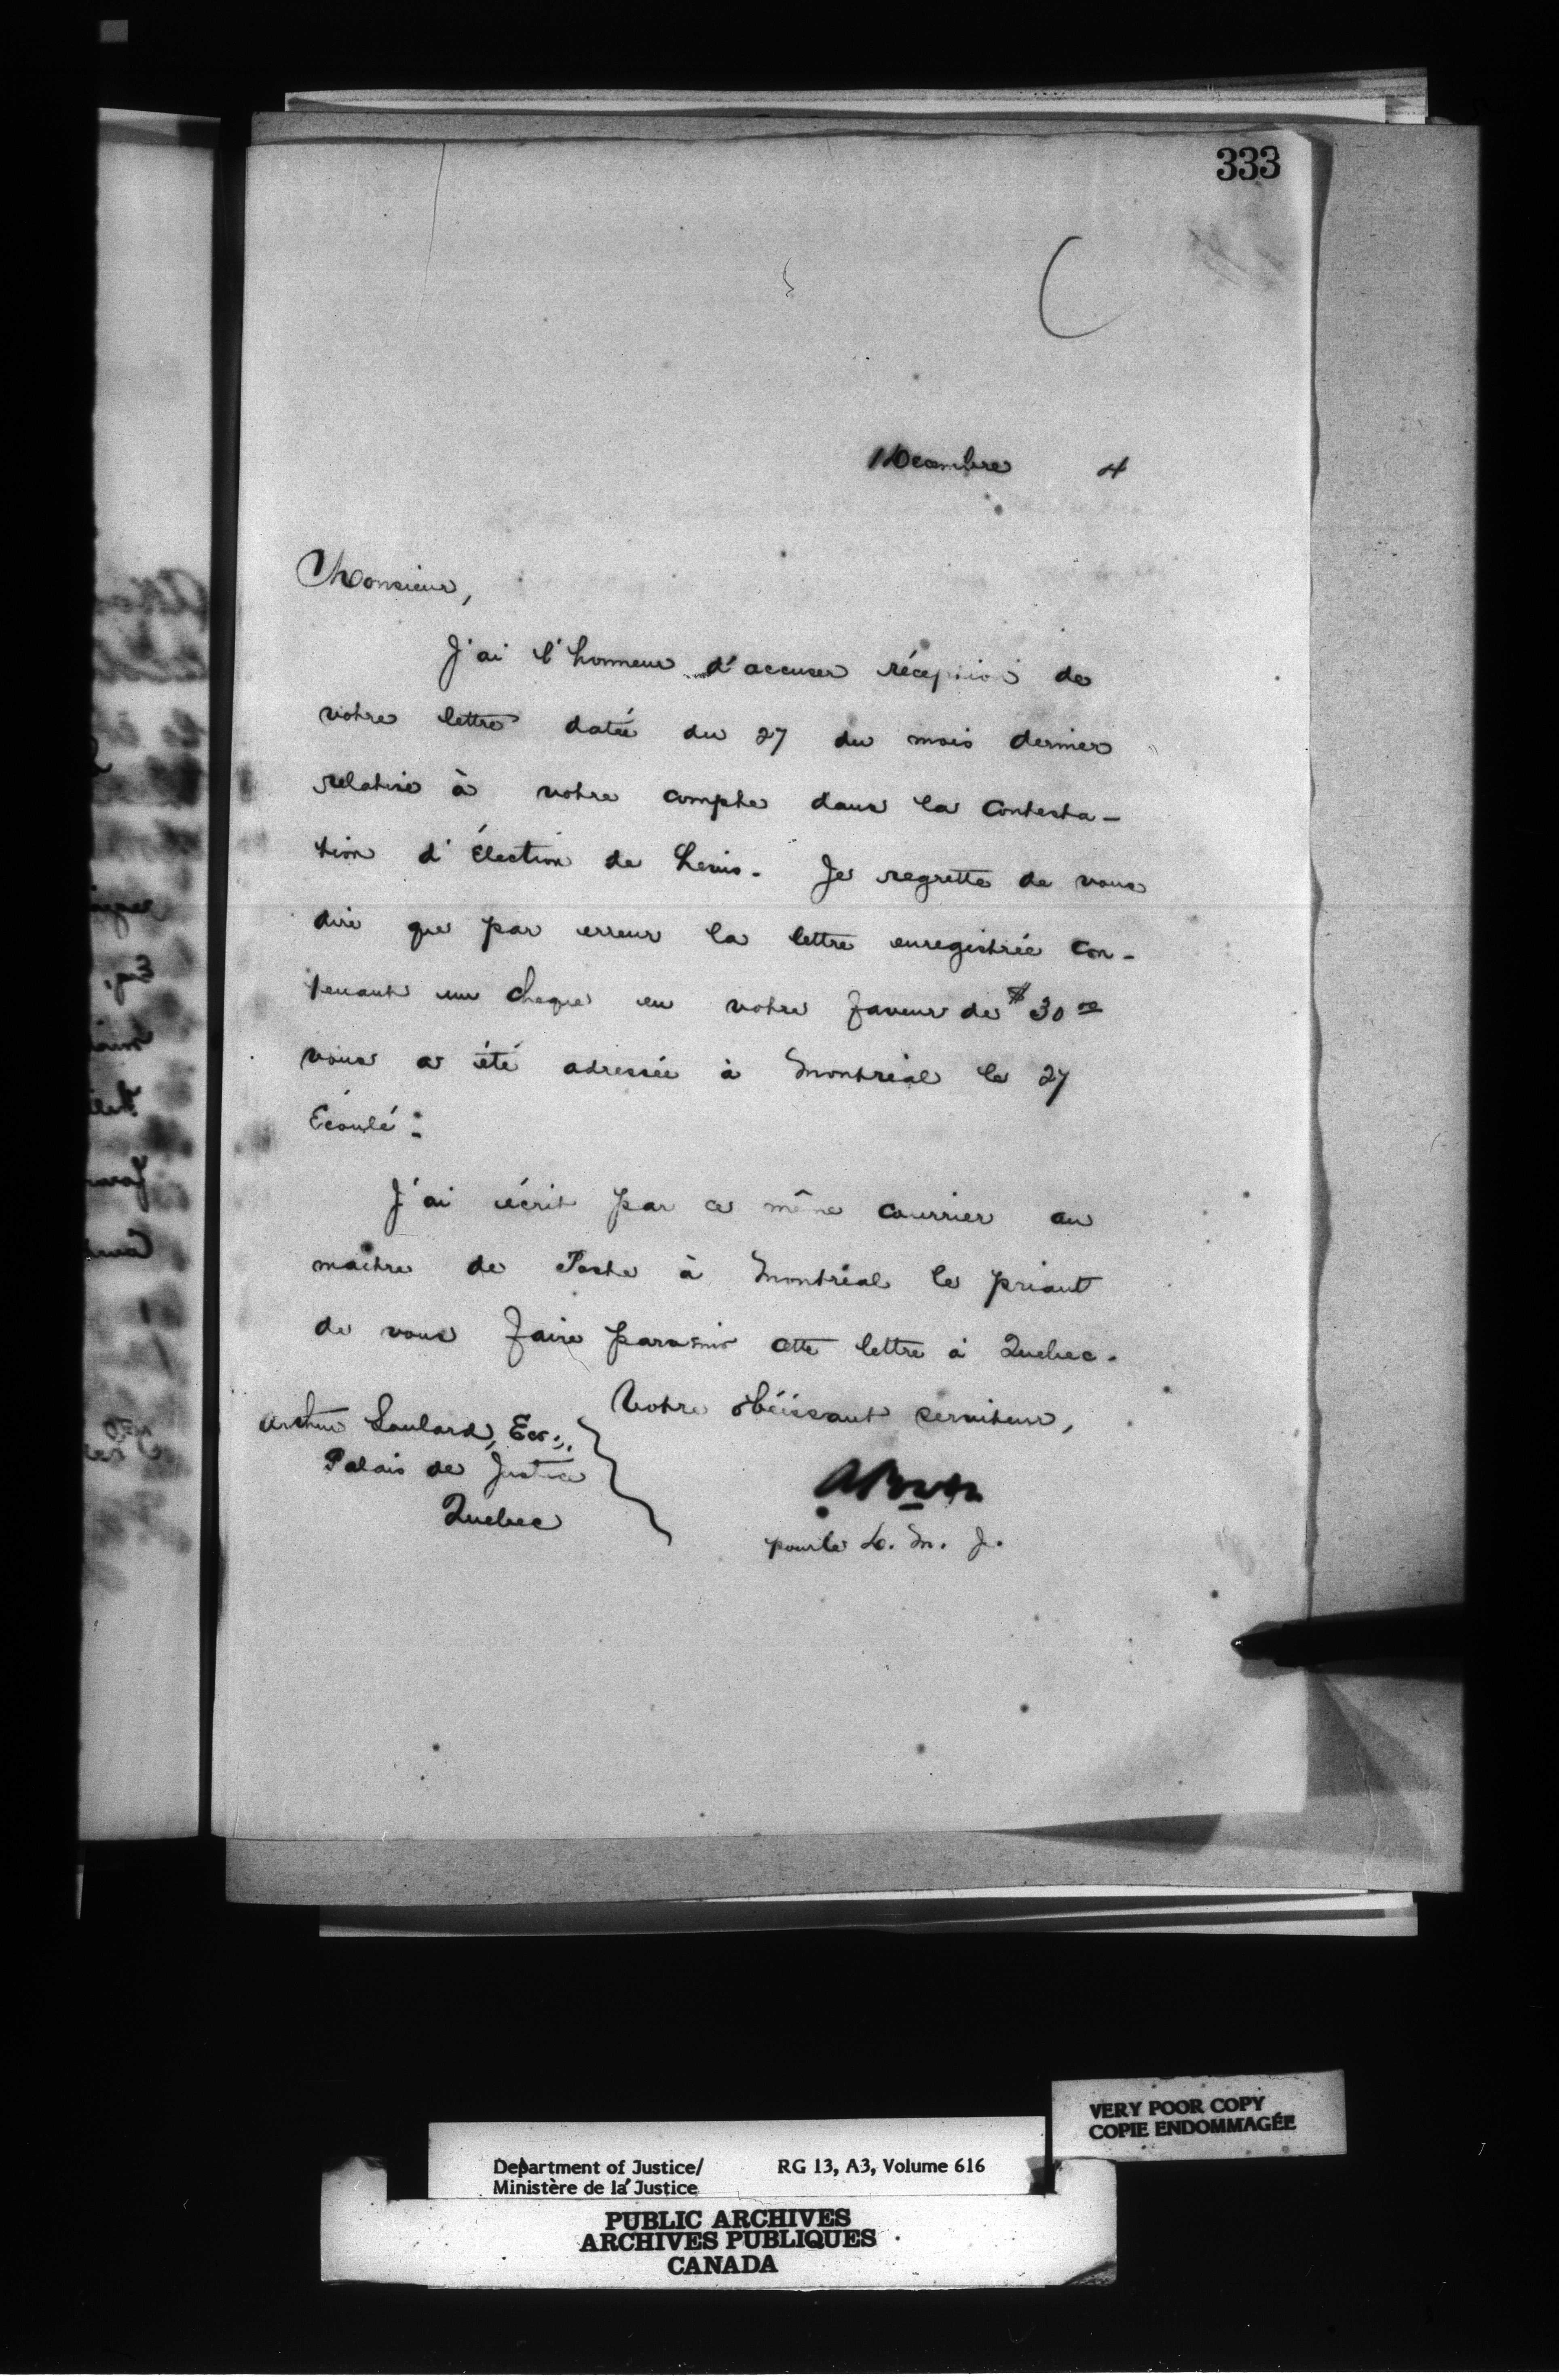 333
1 Decembre 4
Monsieur,
J'ai l'honneur d'accuser réception de
votre lettre datée du 27 du mois dernier
relative à votre compte dans la contesta-
tion d'Élection de Levis. Je regrette de vous
dire que par erreur la lettre enregistrée con-
tenant un cheque en votre faveur de $30 00
vous a été adressée à Montréal le 27
Écoulé.
J'ai écrit par ce même courrier au
maitre de Poste à Montréal le priant
de vous faire parvenir cette lettre à Quebec.
Votre obéissant serviteur,
Arthur Soulard, Ecr.,
Palais de Justice
Quebec
pour le D. M. J.
VERY POOR COPY
COPIE ENDOMMAGÉE
Department of Justice/ RG 13, A3, Volume 616
Ministère de la Justice
PUBLIC ARCHIVES
ARCHIVES PUBLIQUES
CANADA